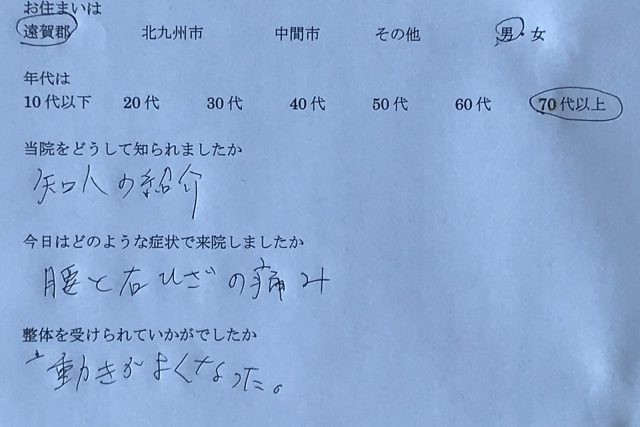 お住まいは
遠賀郡 北九州市 中間市 その他 男・女
年代は
10代以下 20代 30代 40代 50代 60代 70代以上
当院をどうして知られましたか
知人の紹介
今日はどのような症状で来院しましたか
腰と右ひざの痛み
整体を受けられていかがでしたか
動きがよくなった。